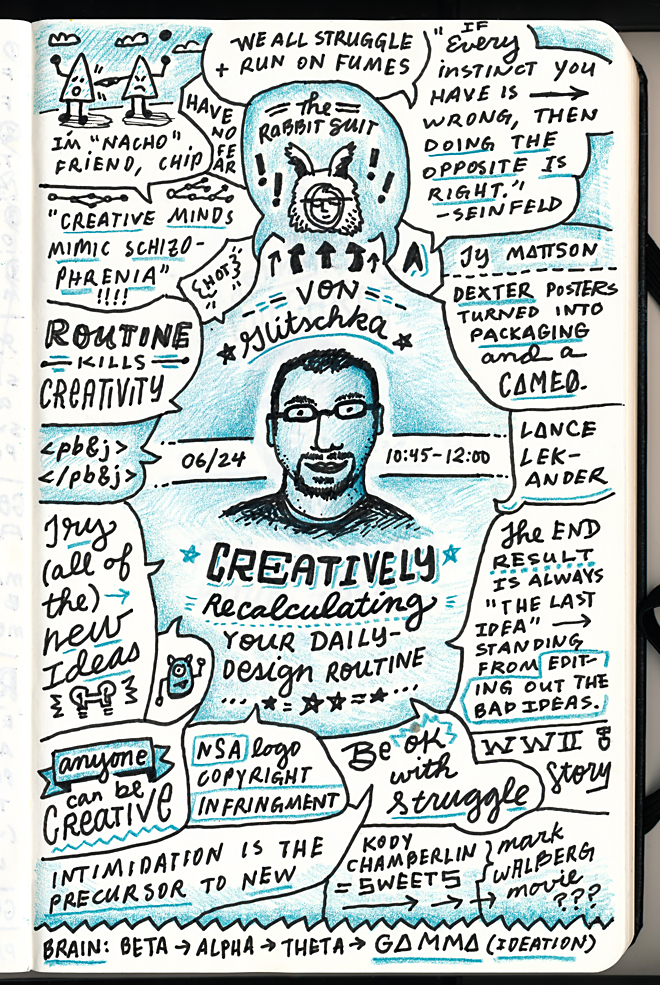 WE ALL STRUGGLE
+ RUN ON FUMES
"IF
Every
INSTINCT YOU
HAVE IS →
WRONG, THEN
DOING THE
OPPOSITE IS
RIGHT."
-SEINFELD
I'M "NACHO"
FRIEND, CHIP
HAVE
NO
FE
AR
= the =
RABBIT SUIT
!! !!
"CREATIVE MINDS
MIMIC SCHIZO-
PHRENIA"
!!!!
{HOT}
A
JY MATTSON
DEXTER POSTERS
TURNED INTO
PACKAGING
and a
CAMEO.
ROUTINE
KILLS
CREATIVITY
VON
Glitschka
<pb&j>
</pb&j>
06/24
10:45-12:00
LANCE
LEK-
ANDER
Try
(all of
the) →
new
Ideas
The END
RESULT
IS ALWAYS
"THE LAST
IDEA" →
STANDING
FROM EDIT-
ING OUT THE
BAD IDEAS.
CREATIVELY
Recalculating
YOUR DAILY-
DESIGN ROUTINE
anyone
can be
CREATIVE
NSA logo
COPYRIGHT
INFRINGMENT
Be OK
with
struggle
WWII
Story
INTIMIDATION IS THE
PRECURSOR TO NEW
KODY
CHAMBERLIN
= SWEETS
mark
WALBERG
movie
???
BRAIN: BETA → ALPHA → THETA → GAMMA (IDEATION)